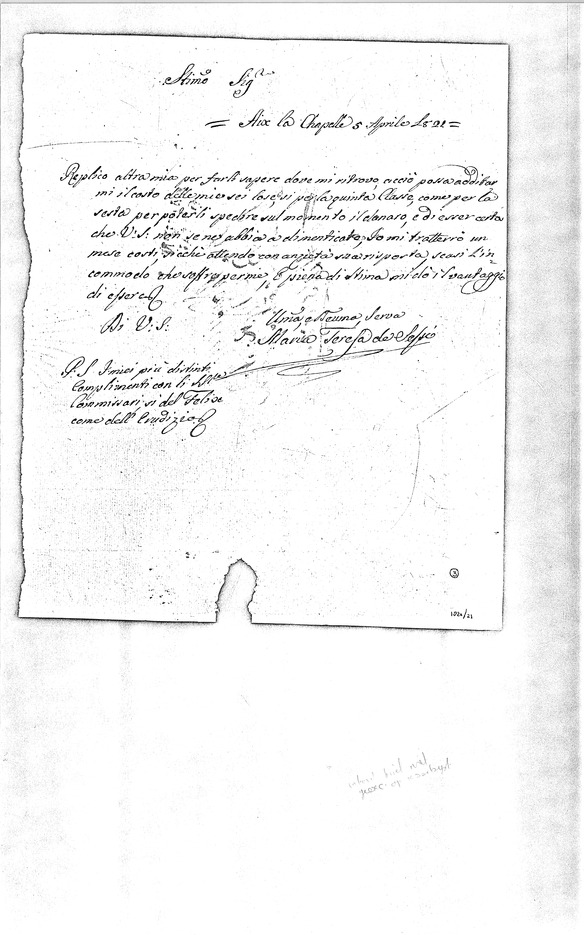 Stimo Sigr
= Aix la Chapelle 5 Aprile 1821 =
Replico altra mia per farli sapere dove mi ritrovo, acciò possa additar
mi il costo delle mie sei lose, si per la quinta Classe, come per la
sesta per poterli spedire sul momento il danaro, e di esser certa
che V: S: non se ne abbia a dimenticato, Jo mi tratterrò un
mese costì, sicche attendo con anzietà sua risposta, scasi L'in
commodo che soffre per me, e piena di Stima mi do il vantaggio
di essere
Di V: S:
Uma e Deuma Serva
Maria Teresa de Sessé
P. S. I miei più distinti
Complimenti con li
Commissari si del Felix
come dell'
3
1821/21